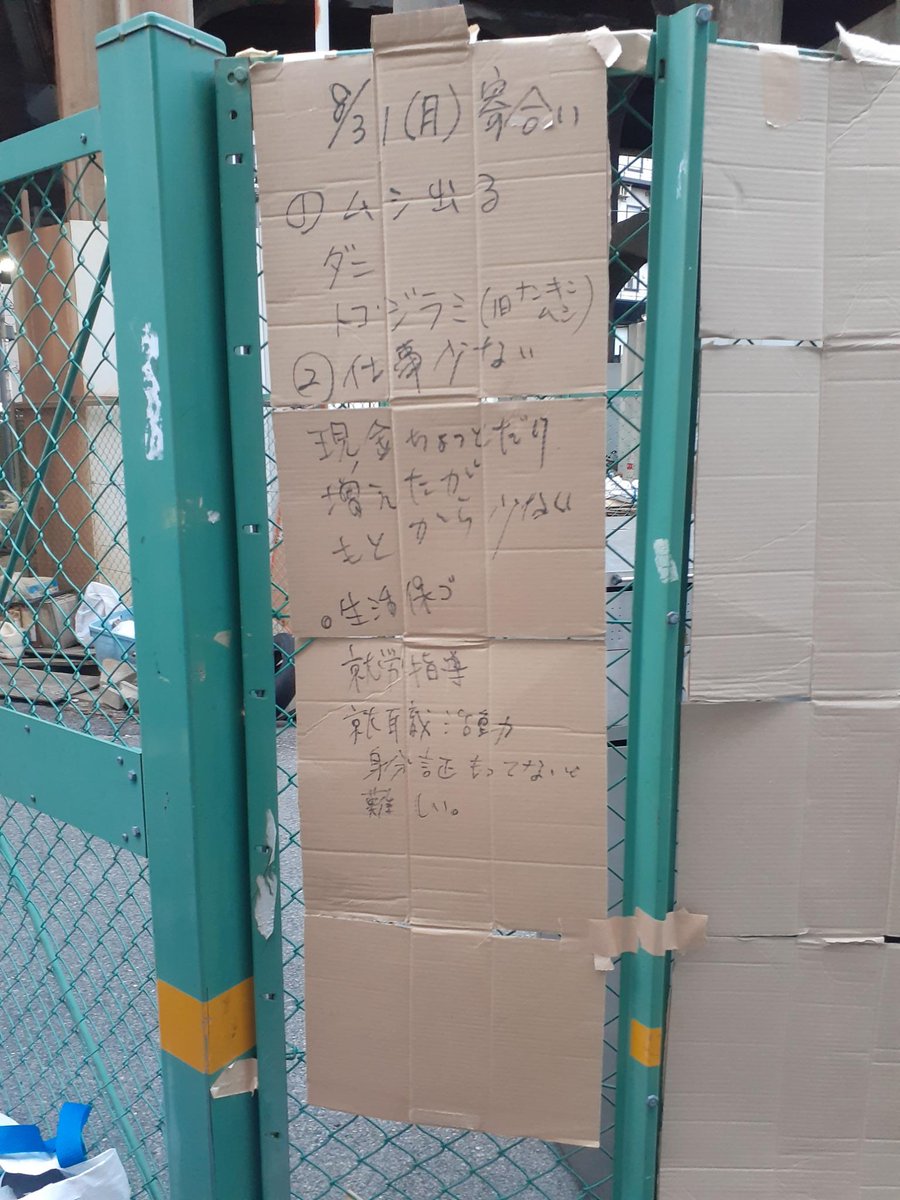 8/31(月)寄合い
①ムシ出る
ダニ
トコジラミ(旧ナンキンムシ)
②仕事少ない
現金ちょっとだけ
増えたが
もとから少ない
。生活保ゴ
就労指導
就職活動
身分証もってないと
難しい。